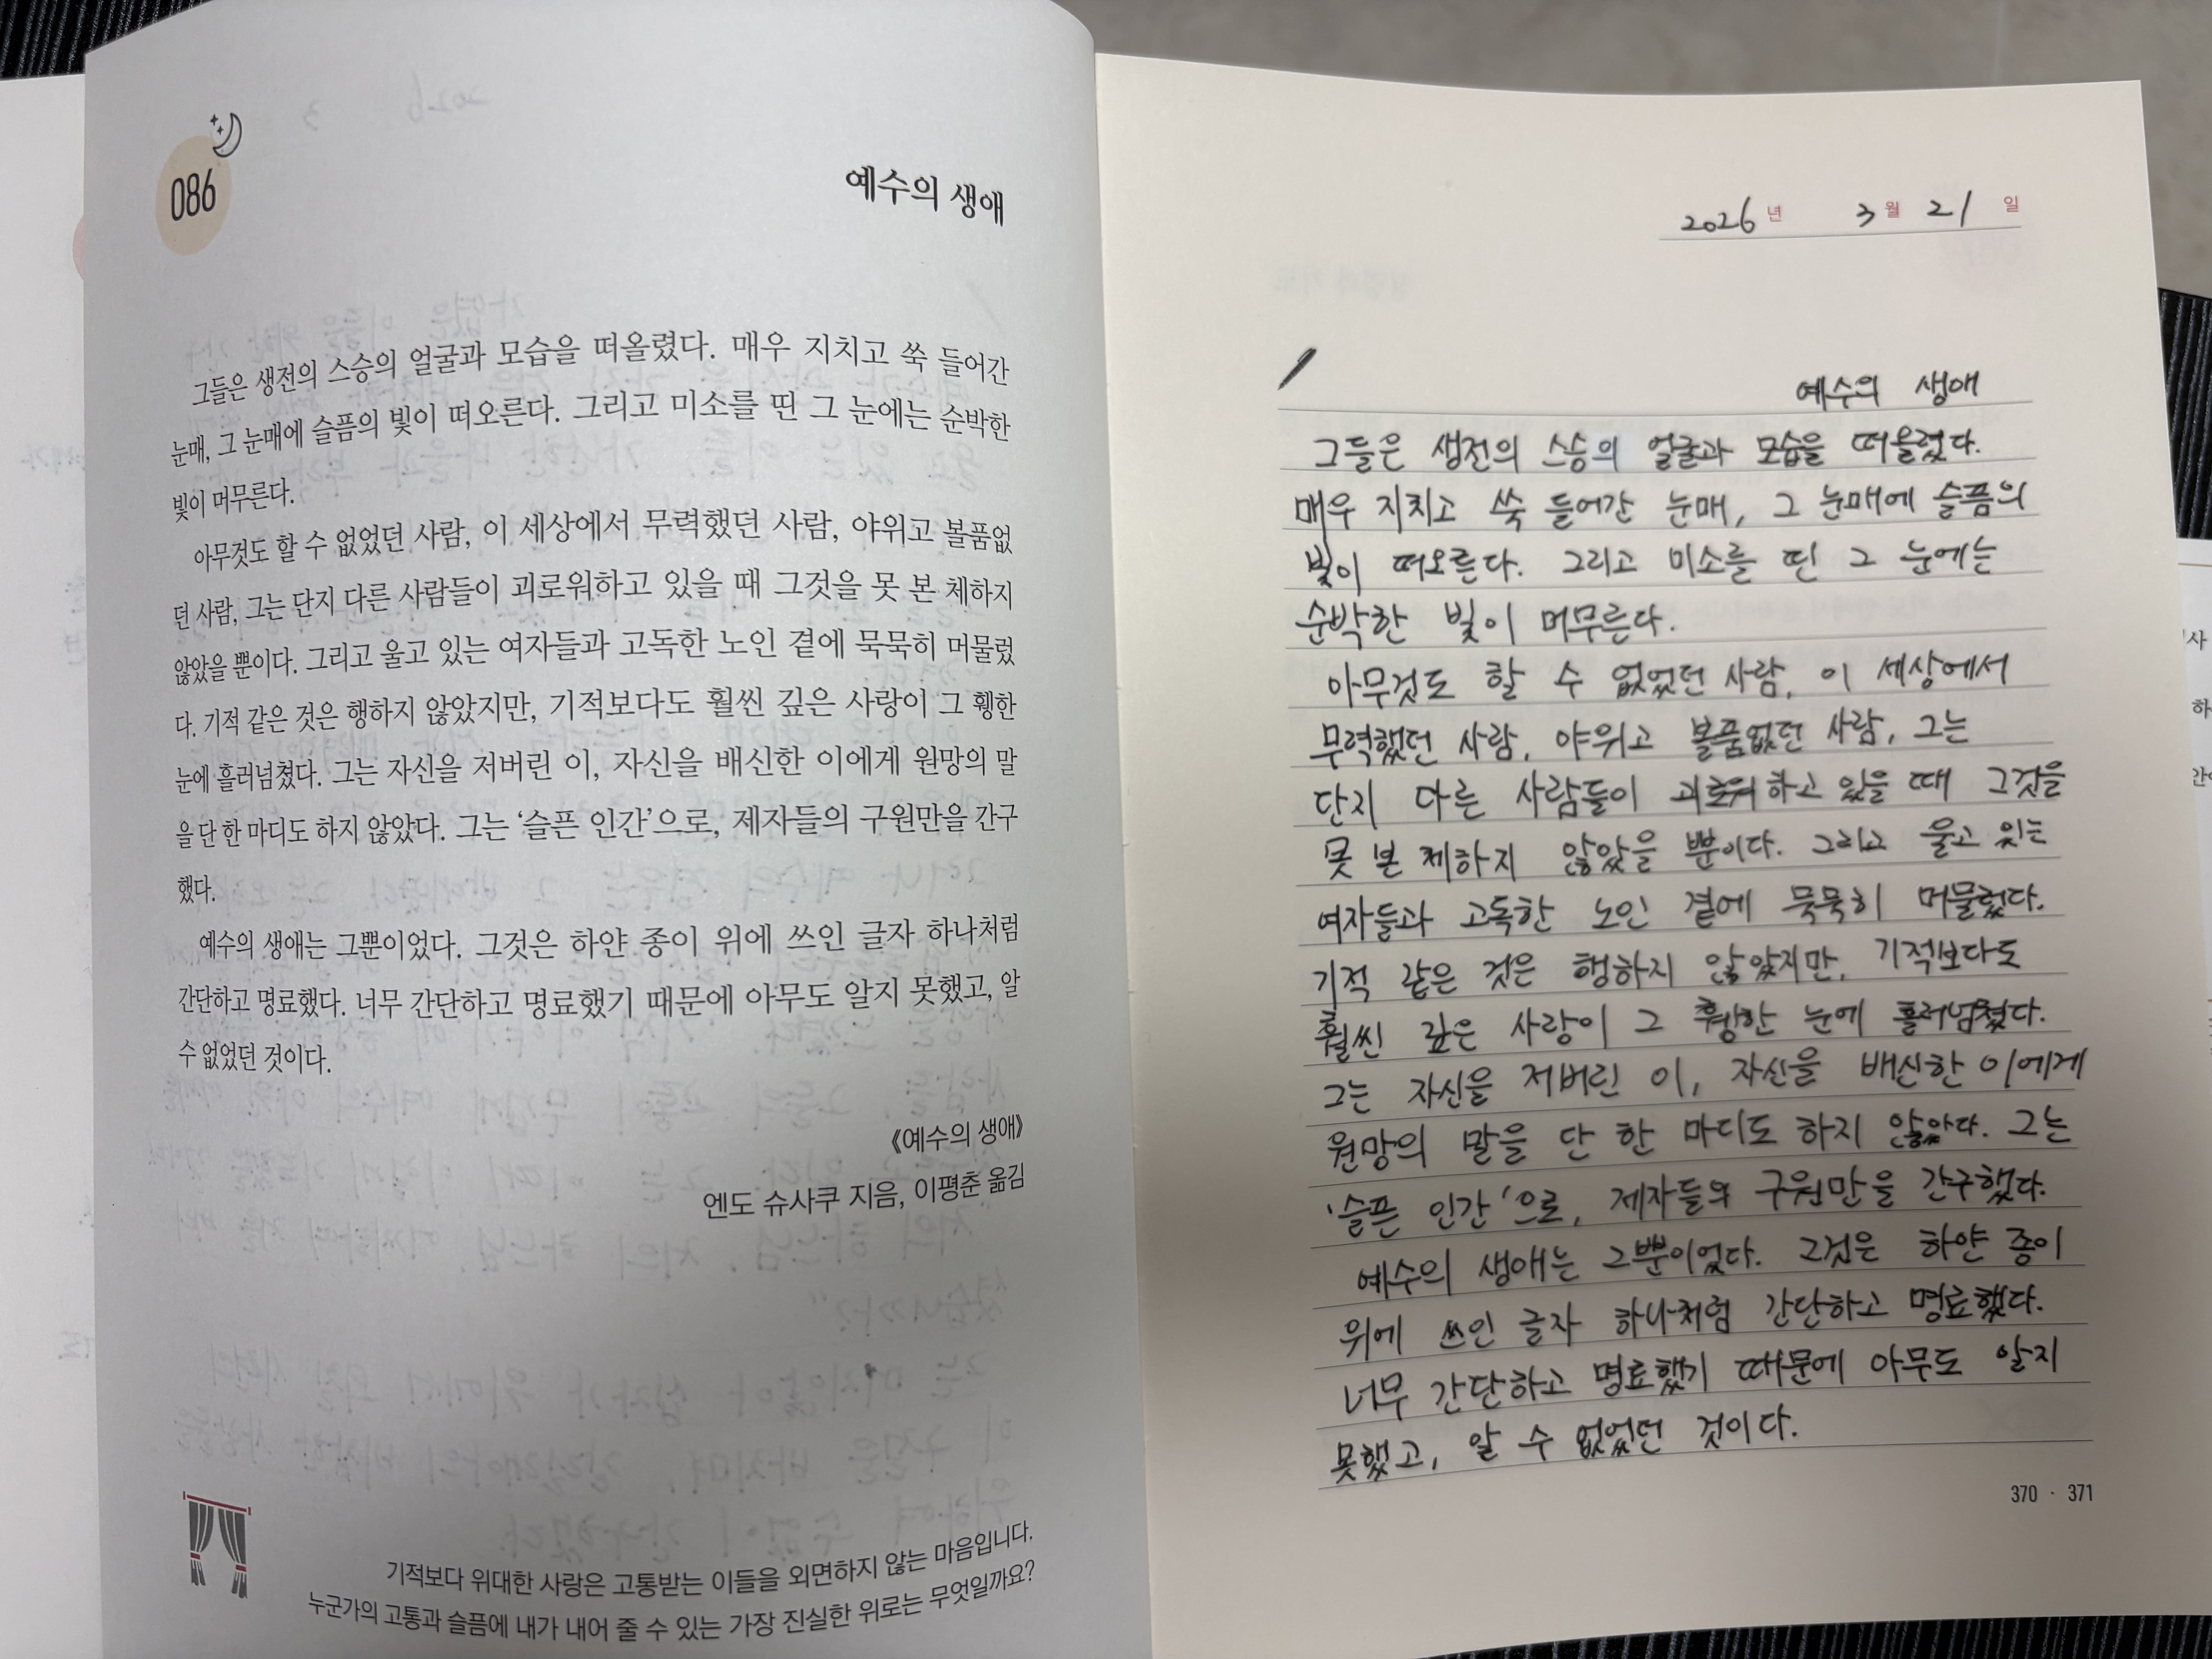 086
예수의 생애
그들은 생전의 스승의 얼굴과 모습을 떠올렸다. 매우 지치고 쑥 들어간
눈매, 그 눈매에 슬픔의 빛이 떠오른다. 그리고 미소를 띤 그 눈에는 순박한
빛이 머무른다.
아무것도 할 수 없었던 사람, 이 세상에서 무력했던 사람, 야위고 볼품없
던 사람, 그는 단지 다른 사람들이 괴로워하고 있을 때 그것을 못 본 체하지
않았을 뿐이다. 그리고 울고 있는 여자들과 고독한 노인 곁에 묵묵히 머물렀
다. 기적 같은 것은 행하지 않았지만, 기적보다도 훨씬 깊은 사랑이 그 휑한
눈에 흘러넘쳤다. 그는 자신을 저버린 이, 자신을 배신한 이에게 원망의 말
을 단 한 마디도 하지 않았다. 그는 ‘슬픈 인간’으로, 제자들의 구원만을 간구
했다.
예수의 생애는 그뿐이었다. 그것은 하얀 종이 위에 쓰인 글자 하나처럼
간단하고 명료했다. 너무 간단하고 명료했기 때문에 아무도 알지 못했고, 알
수 없었던 것이다.
《예수의 생애》
엔도 슈사쿠 지음, 이평춘 옮김
기적보다 위대한 사랑은 고통받는 이들을 외면하지 않는 마음입니다.
누군가의 고통과 슬픔에 내가 내어 줄 수 있는 가장 진실한 위로는 무엇일까요?
2026 년 3 월 21 일
예수의 생애
그들은 생전의 스승의 얼굴과 모습을 떠올렸다.
매우 지치고 쑥 들어간 눈매, 그 눈매에 슬픔의
빛이 떠오른다. 그리고 미소를 띤 그 눈에는
순박한 빛이 머무른다.
아무것도 할 수 없었던 사람, 이 세상에서
무력했던 사람, 야위고 볼품없던 사람, 그는
단지 다른 사람들이 괴로워하고 있을 때 그것을
못 본 체하지 않았을 뿐이다. 그리고 울고 있는
여자들과 고독한 노인 곁에 묵묵히 머물렀다.
기적 같은 것은 행하지 않았지만, 기적보다도
훨씬 깊은 사랑이 그 휑한 눈에 흘러넘쳤다.
그는 자신을 저버린 이, 자신을 배신한 이에게
원망의 말을 단 한 마디도 하지 않았다. 그는
‘슬픈 인간’으로, 제자들의 구원만을 간구했다.
예수의 생애는 그뿐이었다. 그것은 하얀 종이
위에 쓰인 글자 하나처럼 간단하고 명료했다.
너무 간단하고 명료했기 때문에 아무도 알지
못했고, 알 수 없었던 것이다.
370 · 371